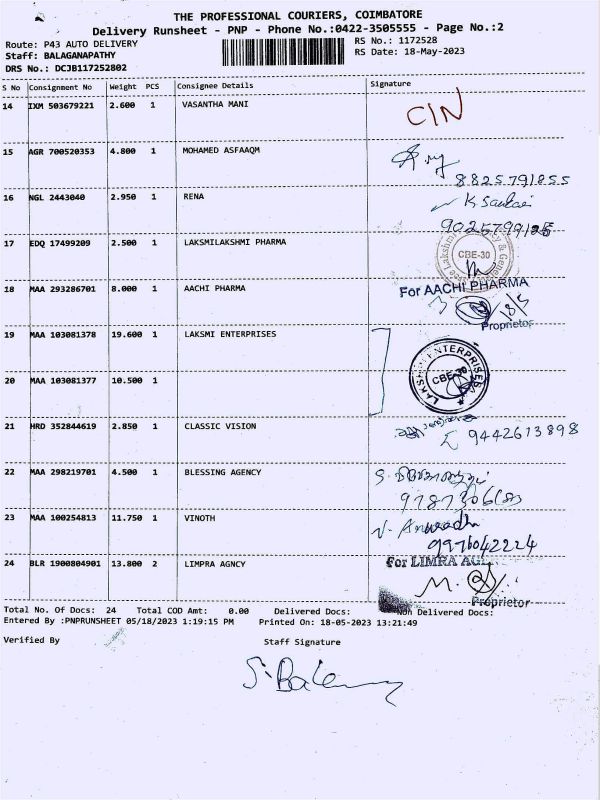 THE PROFESSIONAL COURIERS, COIMBATORE
Delivery Runsheet - PNP - Phone No.:0422-3505555 - Page No.:2
Route: P43 AUTO DELIVERY RS No.: 1172528
Staff: BALAGANAPATHY RS Date: 18-May-2023
DRS No.: DCJB117252802
S No Consignment No Weight PCS Consignee Details Signature
14 IXM 503679221 2.600 1 VASANTHA MANI CIN
15 AGR 700520353 4.800 1 MOHAMED ASFAAQM
8825791855
16 NGL 2443040 2.950 1 RENA
17 EDQ 17499209 2.500 1 LAKSMILAKSHMI PHARMA CBE-30
18 MAA 293286701 8.000 1 AACHI PHARMA For AACHI PHARMA
18/5
Proprietor
19 MAA 103081378 19.600 1 LAKSMI ENTERPRISES
LAKSHMI ENTERPRISES
20 MAA 103081377 10.500 1
21 HRD 352844619 2.850 1 CLASSIC VISION 9442613898
22 MAA 298219701 4.500 1 BLESSING AGENCY
23 MAA 100254813 11.750 1 VINOTH V. Anuradha
9976042224
24 BLR 1900804901 13.800 2 LIMPRA AGNCY For LIMRA
M.
Proprietor
Total No. Of Docs: 24 Total COD Amt: 0.00 Delivered Docs: Non Delivered Docs:
Entered By :PNPRUNSHEET 05/18/2023 1:19:15 PM Printed On: 18-05-2023 13:21:49
Verified By Staff Signature